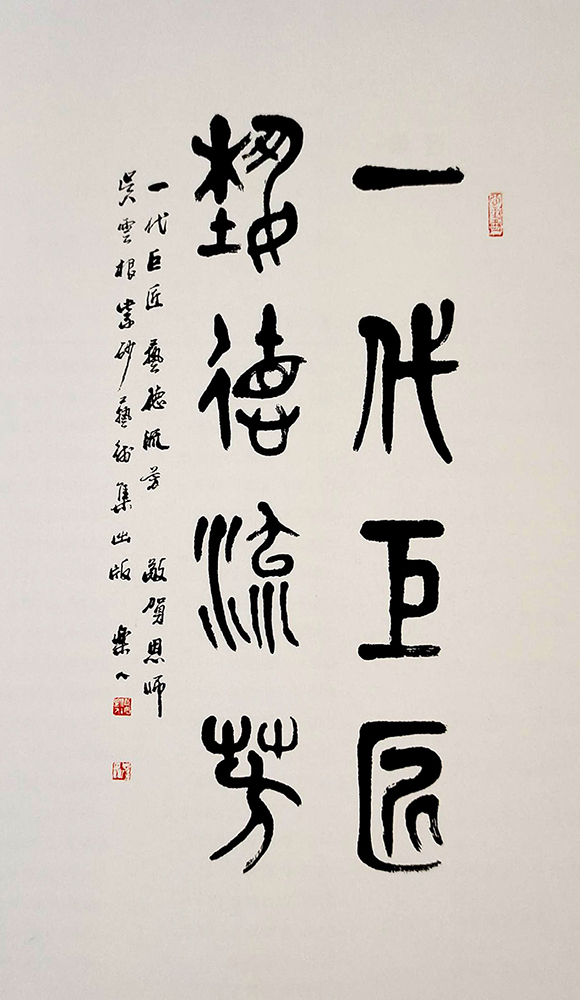 一代巨匠
藝德流芳
一代巨匠 藝德流芳 敬賀恩師
吴雲根紫砂藝術集出版 樂人